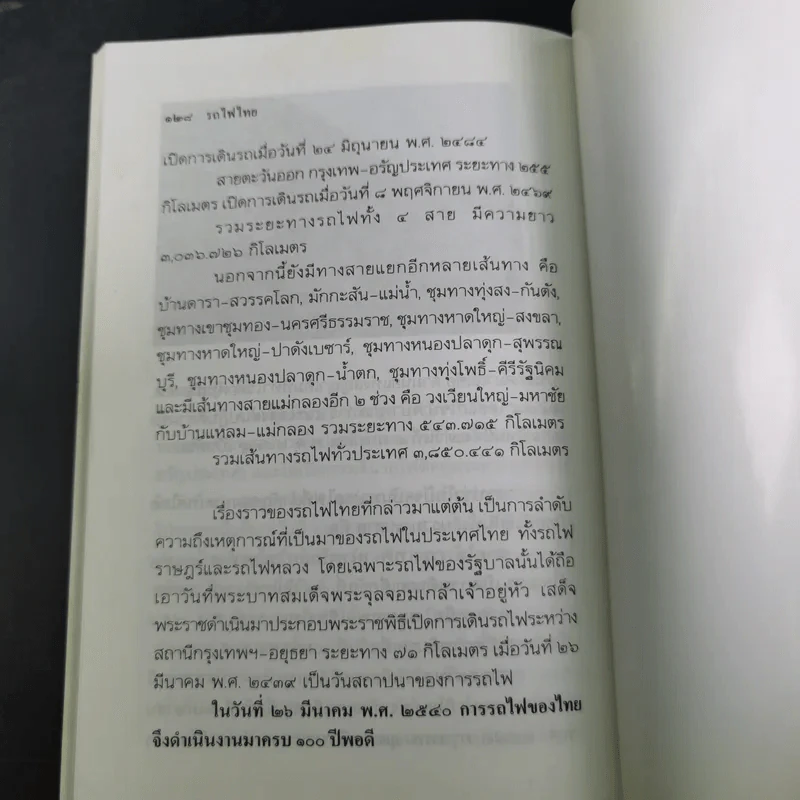 ๑๒๘ รถไฟไทย
เปิดการเดินรถเมื่อวันที่ ๒๔ มิถุนายน พ.ศ. ๒๔๘๔
สายตะวันออก กรุงเทพ-อรัญประเทศ ระยะทาง ๒๕๕
กิโลเมตร เปิดการเดินรถเมื่อวันที่ ๘ พฤศจิกายน พ.ศ. ๒๔๖๙
รวมระยะทางรถไฟทั้ง ๔ สาย มีความยาว
๓,๐๓๖.๗๒๖ กิโลเมตร
นอกจากนี้ยังมีทางสายแยกอีกหลายเส้นทาง คือ
บ้านดารา-สวรรคโลก, มักกะสัน-แม่น้ำ, ชุมทางทุ่งสง-กันตัง,
ชุมทางเขาชุมทอง-นครศรีธรรมราช, ชุมทางหาดใหญ่-สงขลา,
ชุมทางหาดใหญ่-ปาดังเบซาร์, ชุมทางหนองปลาดุก-สุพรรณ
บุรี, ชุมทางหนองปลาดุก-น้ำตก, ชุมทางทุ่งโพธิ์-คีรีรัฐนิคม
และมีเส้นทางสายแม่กลองอีก ๒ ช่วง คือ วงเวียนใหญ่-มหาชัย
กับบ้านแหลม-แม่กลอง รวมระยะทาง ๕๔๓.๗๑๕ กิโลเมตร
รวมเส้นทางรถไฟทั่วประเทศ ๓,๘๕๐.๔๔๑ กิโลเมตร
เรื่องราวของรถไฟไทยที่กล่าวมาแต่ต้น เป็นการลำดับ
ความถึงเหตุการณ์ที่เป็นมาของรถไฟในประเทศไทย ทั้งรถไฟ
ราษฎร์และรถไฟหลวง โดยเฉพาะรถไฟของรัฐบาลนั้นได้ถือ
เอาวันที่พระบาทสมเด็จพระจุลจอมเกล้าเจ้าอยู่หัว เสด็จ
พระราชดำเนินมาประกอบพระราชพิธีเปิดการเดินรถไฟระหว่าง
สถานีกรุงเทพฯ-อยุธยา ระยะทาง ๗๑ กิโลเมตร เมื่อวันที่ ๒๖
มีนาคม พ.ศ. ๒๔๓๙ เป็นวันสถาปนาของการรถไฟ
ในวันที่ ๒๖ มีนาคม พ.ศ. ๒๕๔๐ การรถไฟของไทย
จึงดำเนินงานมาครบ ๑๐๐ ปีพอดี